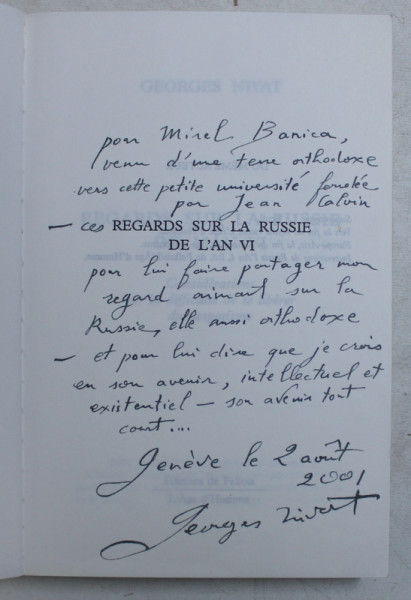 GEORGES NIVAT
pour Mirel Banica,
venu d'une terre orthodoxe
vers cette petite université fondée
par Jean Calvin
— ces REGARDS SUR LA RUSSIE
DE L'AN VI
pour lui faire partager mon
regard aimant sur la
Russie, elle aussi orthodoxe
— et pour lui dire que je crois
en son avenir, intellectuel et
existentiel — son avenir tout
court...
Genève le 2 août
2001
Georges Nivat